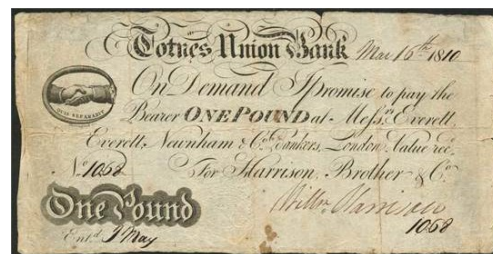 Totnes Union Bank Mar 16th 1810
On Demand I promise to pay the
Bearer ONE POUND at Messrs Everett,
Everett, Newnham & Co. Bankers, London. Value recd.
No 1068 For Harrison, Brother & Co.
One Pound
Willm Harrison
1068
Entd J May